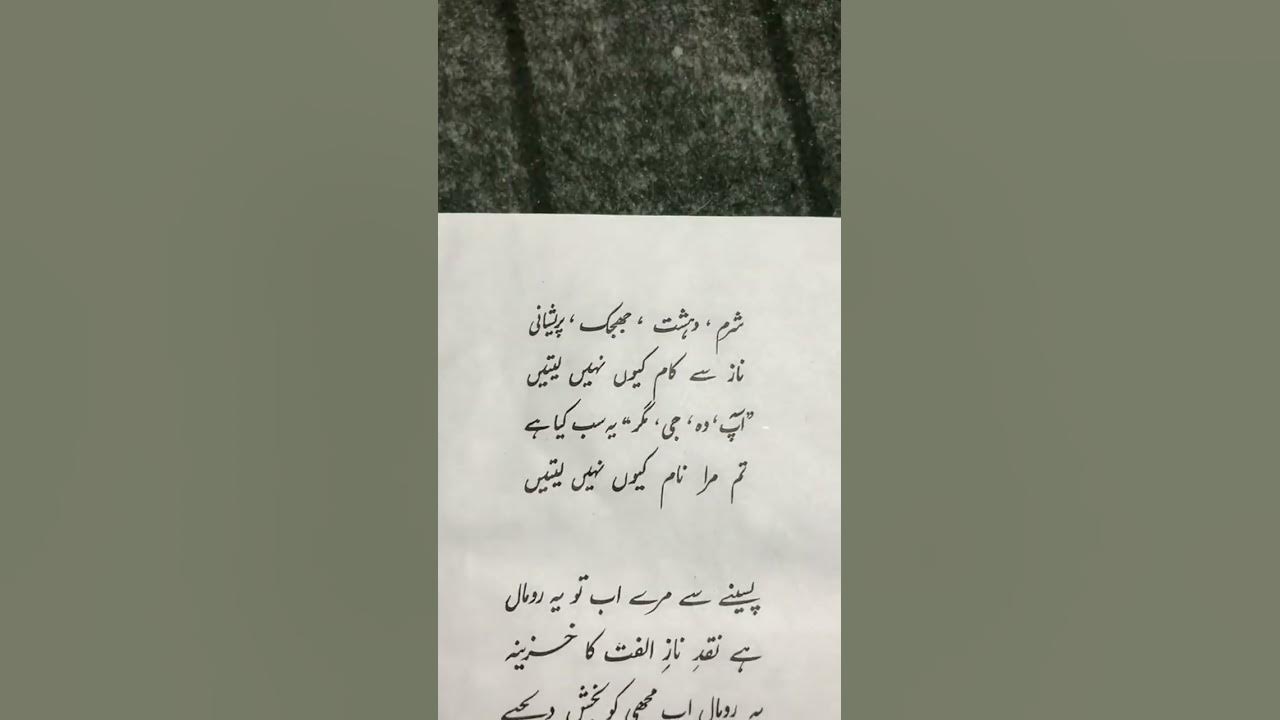 شرم، دہشت، جھجک، پریشانی
ناز سے کام کیوں نہیں لیتیں
”آپ، وہ، جی، مگر“ یہ سب کیا ہے
تم مرا نام کیوں نہیں لیتیں
پسینے سے مرے اب تو یہ رومال
ہے نقدِ نازِ الفت کا خزینہ
یہ رومال اب مجھی کو بخش دیجے